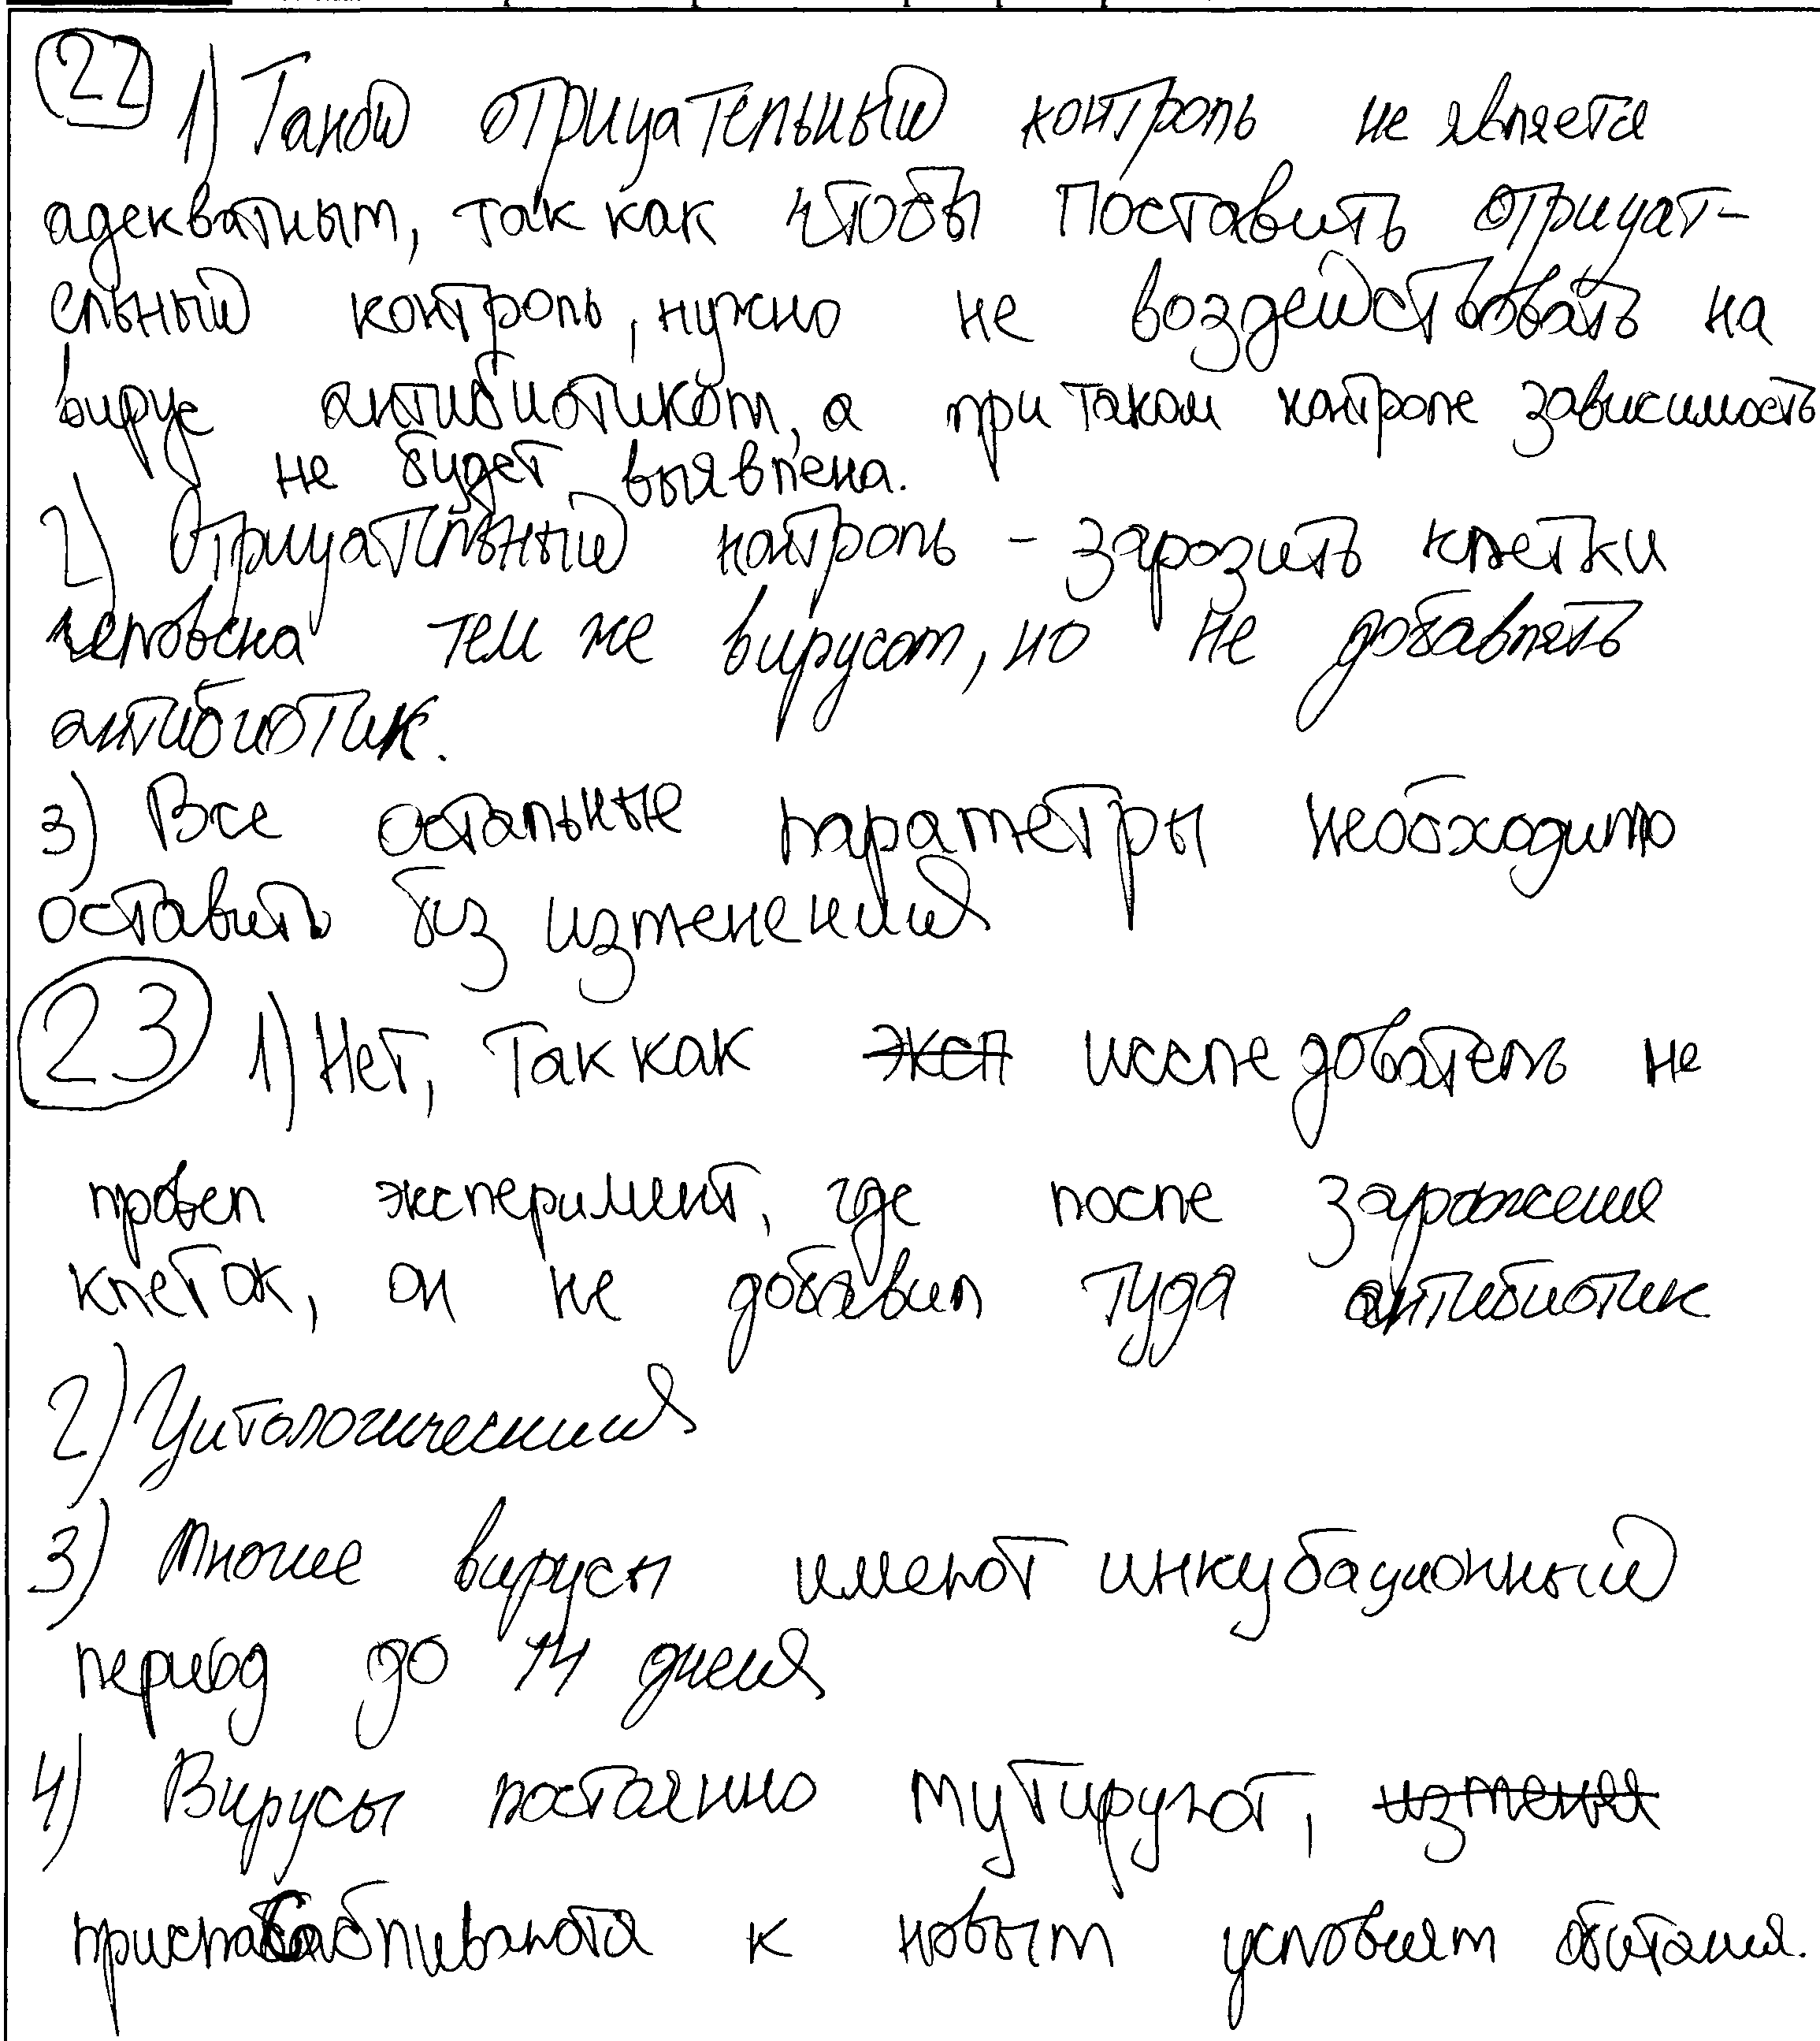 22 1) Такой отрицательный контроль не является
адекватным, так как чтобы поставить отрицат-
ельный контроль, нужно не воздействовать на
вирус антибиотиком, а при таком контроле зависимость
не будет выявлена.
2) Отрицательный контроль - заразить клетки
человека тем же вирусом, но не добавлять
антибиотик.
3) Все остальные параметры необходимо
оставить без изменений
23 1) Нет, так как эксп исследователь не
провел эксперимент, где после заражения
клеток, он не добавил туда антибиотик
2) Цитологический
3) Многие вирусы имеют инкубационный
период до 14 дней
4) Вирусы постоянно мутируют, изменя
приспосабливаются к новым условиям обитания.